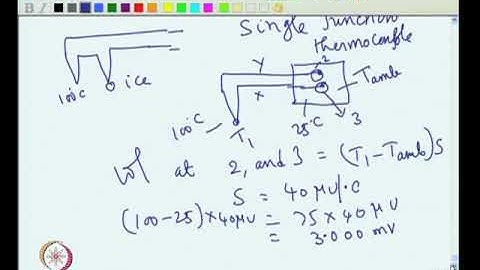 Single Junction
thermocouple
100°C
ice
y
2
x
Tamb
25°C
3
100°C
T1
at 2, and 3 = (T1 - Tamb) S
S = 40 μv/°C
(100-25) × 40 μv = 75 × 40 μv
= 3.000 mv